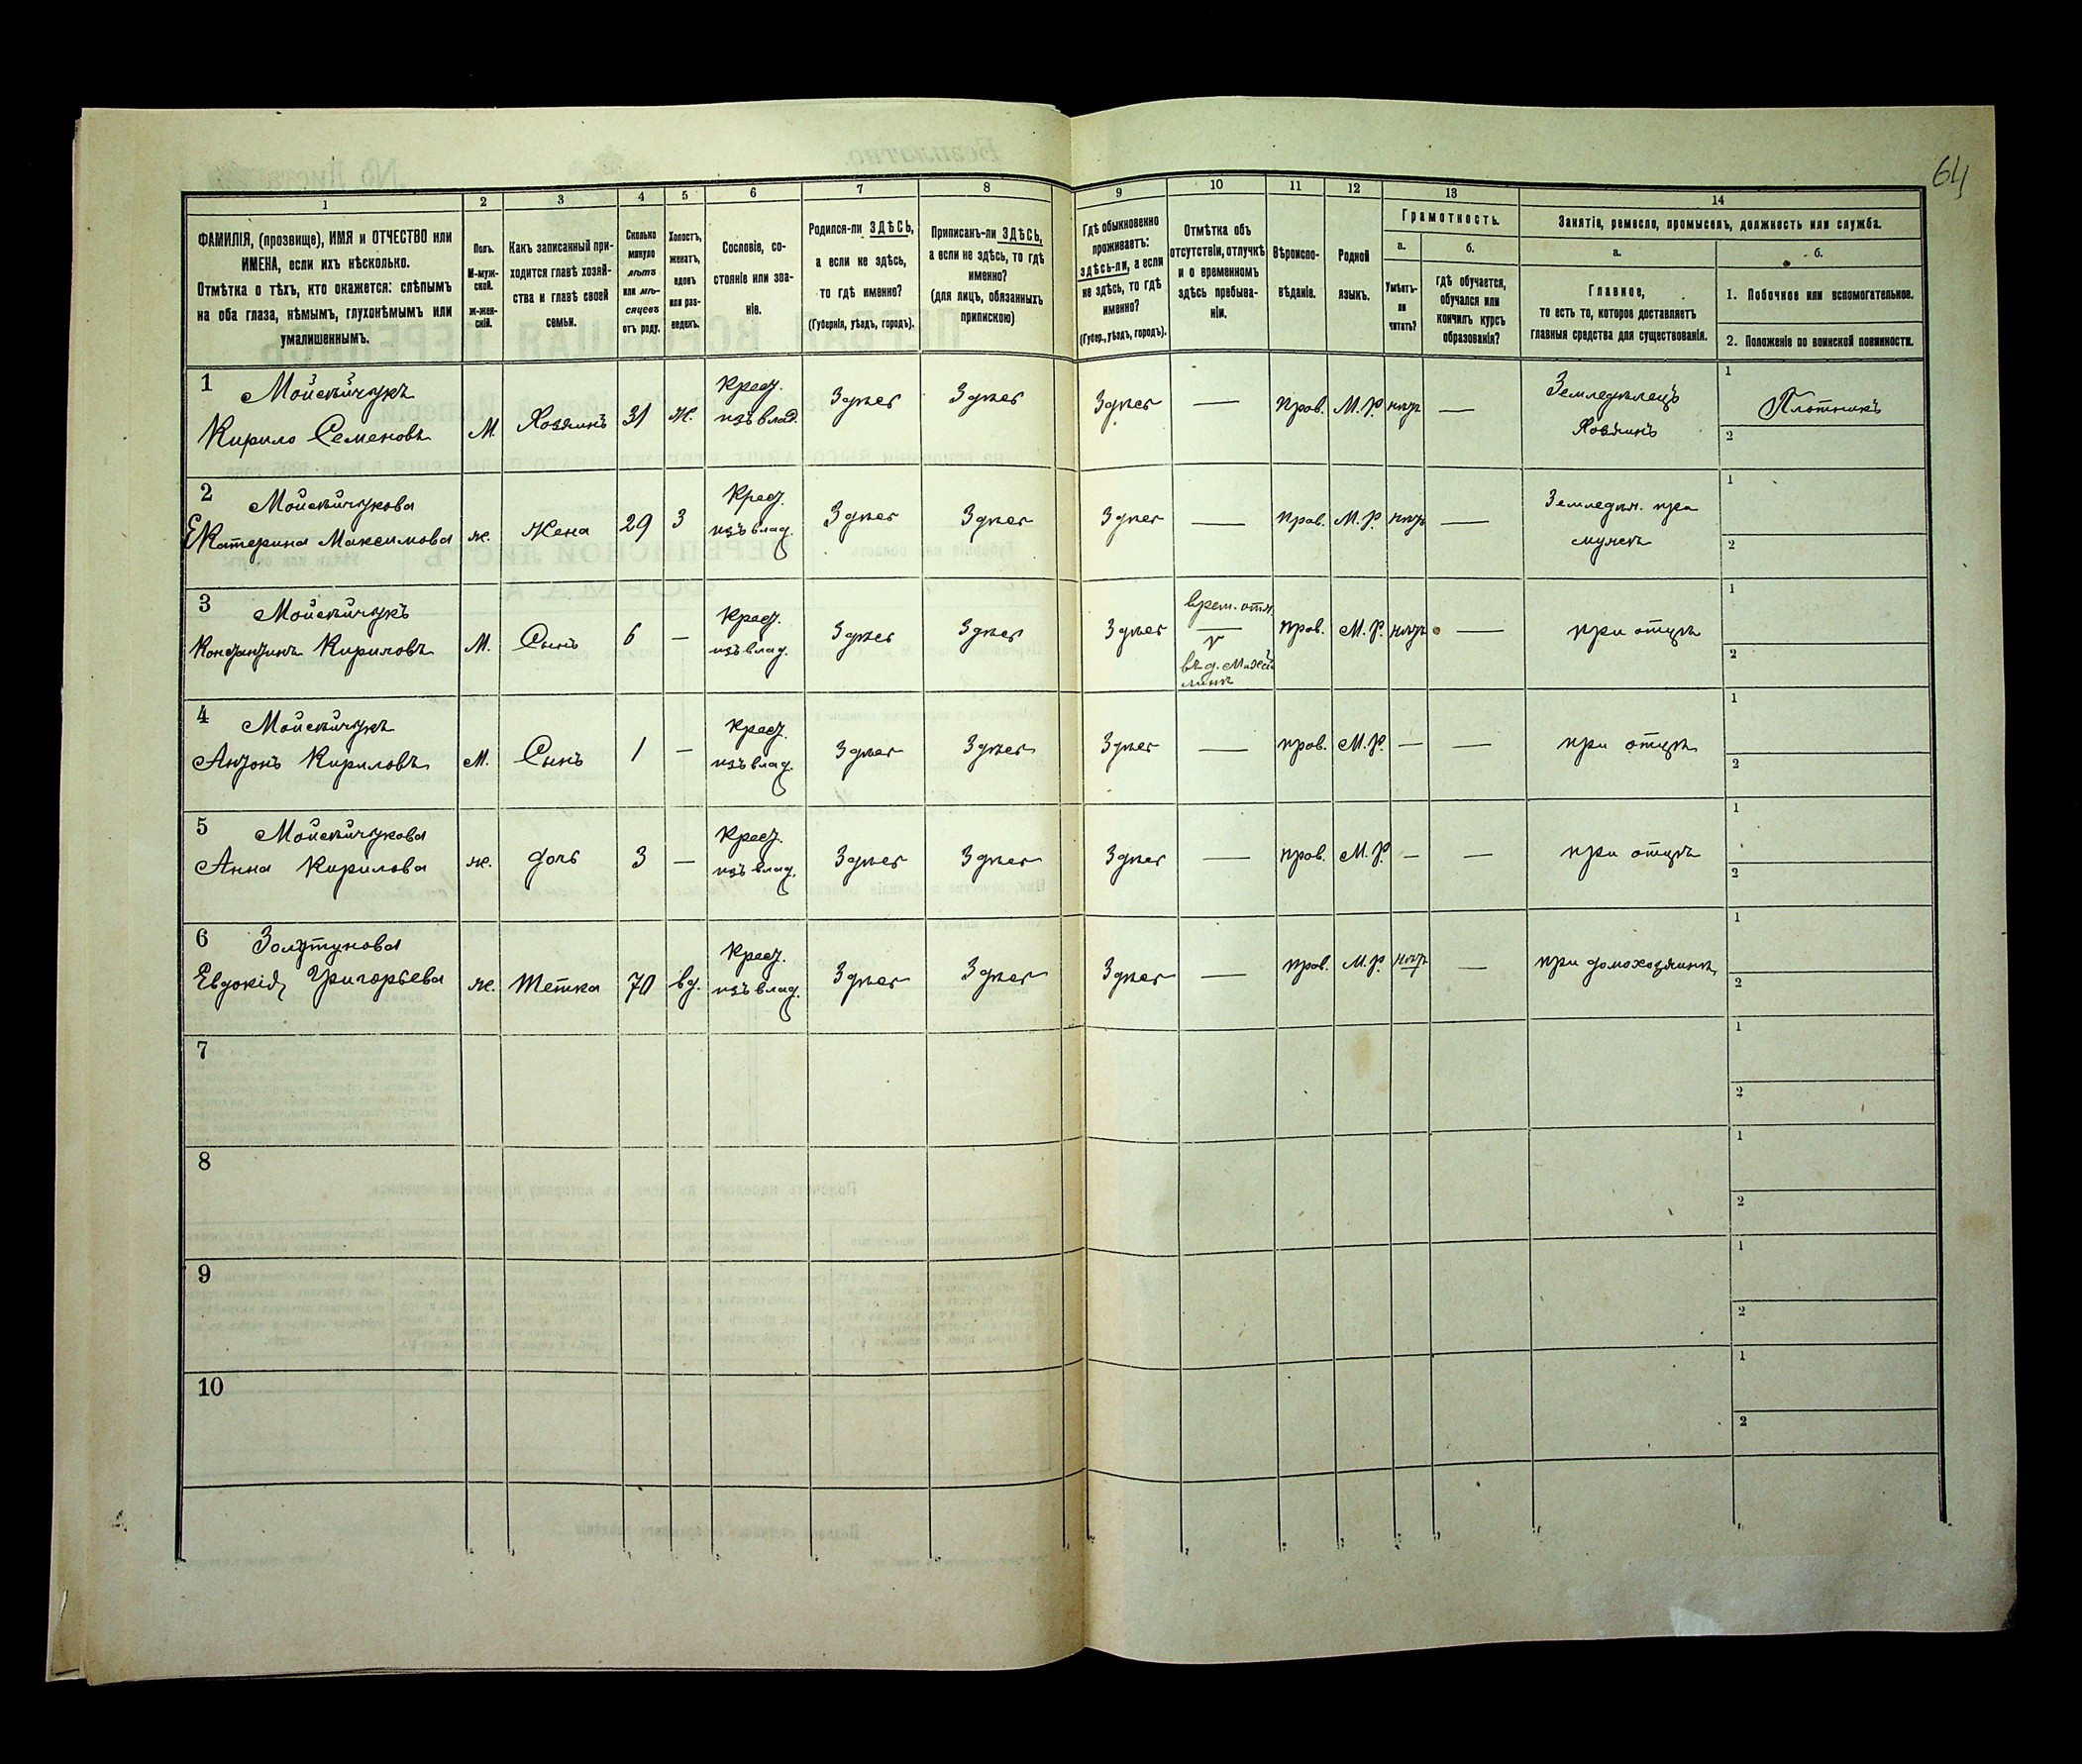 64
1
2
3
4
5
6
7
8
9
10
11
12
13
14
ФАМИЛІЯ, (прозвище), ИМЯ и ОТЧЕСТВО или
ИМЕНА, если ихъ нѣсколько.
Отмѣтка о тѣхъ, кто окажется: слѣпымъ
на оба глаза, нѣмымъ, глухонѣмымъ или
умалишеннымъ.
Полъ.
М-муж-
ской.
ж-жен-
скій.
Какъ записанный при-
ходится главѣ хозяй-
ства и главѣ своей
семьи.
Сколько
минуло
лѣтъ
или мѣ-
сяцевъ
отъ роду.
Холостъ,
женатъ,
вдовъ
или раз-
веденъ.
Сословіе, со-
стояніе или зва-
ніе.
Родился-ли ЗДѢСЬ,
а если не здѣсь,
то гдѣ именно?
(Губернія, уѣздъ, городъ).
Приписанъ-ли ЗДѢСЬ,
а если не здѣсь, то гдѣ
именно?
(для лицъ, обязанныхъ
припискою)
Гдѣ обыкновенно
проживаетъ:
здѣсь-ли, а если
не здѣсь, то гдѣ
именно?
(Губер., уѣздъ, городъ).
Отмѣтка объ
отсутствіи, отлучкѣ
и о временномъ
здѣсь пребыва-
ніи.
Вѣроиспо-
вѣданіе.
Родной
языкъ.
Грамотность.
а.
Умѣетъ-
ли
читать?
б.
гдѣ обучается,
обучался или
кончилъ курсъ
образованія?
Занятіе, ремесло, промыселъ, должность или служба.
а.
Главное,
то есть то, которое доставляетъ
главныя средства для существованія.
б.
1. Побочное или вспомогательное.
2. Положеніе по воинской повинности.
1 Мойсѣйчукъ
Кирило Семеновъ М. Хозяинъ 31 Ж. Крест. изъ влад. Здѣсь Здѣсь Здѣсь — прав. М.Р. нѣтъ — Земледѣлецъ Хозяинъ 1 Плотникъ
2
2 Мойсѣйчукова
Екатерина Максимова ж. Жена 29 З Крест. изъ влад. Здѣсь Здѣсь Здѣсь — прав. М.Р. нѣтъ — Земледѣл. при мужѣ 1
2
3 Мойсѣйчукъ
Константинъ Кириловъ М. Сынъ 6 — Крест. изъ влад. Здѣсь Здѣсь Здѣсь врем. отл. въ д. прав. М.Р. нѣтъ — при отцѣ 1
2
4 Мойсѣйчукъ
Антонъ Кириловъ М. Сынъ 1 — Крест. изъ влад. Здѣсь Здѣсь Здѣсь — прав. М.Р. — — при отцѣ 1
2
5 Мойсѣйчукова
Анна Кирилова ж. дочь 3 — Крест. изъ влад. Здѣсь Здѣсь Здѣсь — прав. М.Р. — — при отцѣ 1
2
6
Евдокія Григорьева ж. тетка 70 вд. Крест. изъ влад. Здѣсь Здѣсь Здѣсь — прав. М.Р. нѣтъ — при домохозяинѣ 1
2
7 1
2
8 1
2
9 1
2
10 1
2